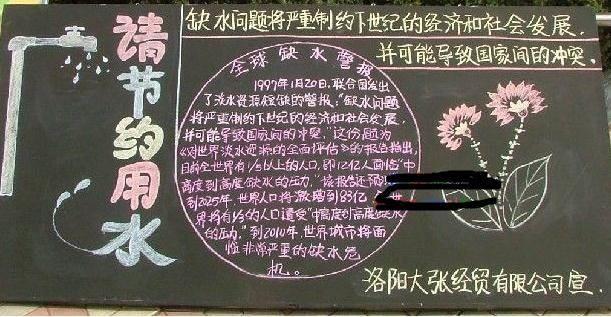 请节约用水
缺水问题将严重制约下世纪的经济和社会发展，
并可能导致国家间的冲突。
全球缺水警报
1997年1月20日，联合国发出
了淡水资源短缺的警报："缺水问题
将严重制约下世纪的经济和社会发展，
并可能导致国家间的冲突。"这份题为
《对世界淡水资源的全面评估》的报告指出，
目前全世界有1/5以上的人口，即12亿人面临"中
高度到高度缺水的压力。"该报告还预
到2025年，世界人口将激增到83亿，
界将有1/3的人口遭受"中高度到高度缺水
的压力。"到2010年，世界城市将面
临非常严重的缺水危
机。
洛阳大张经贸有限公司宣.